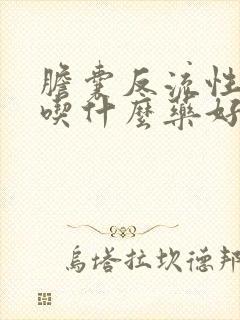 膽囊反流性
喫什麼藥好
烏塔拉坎德邦